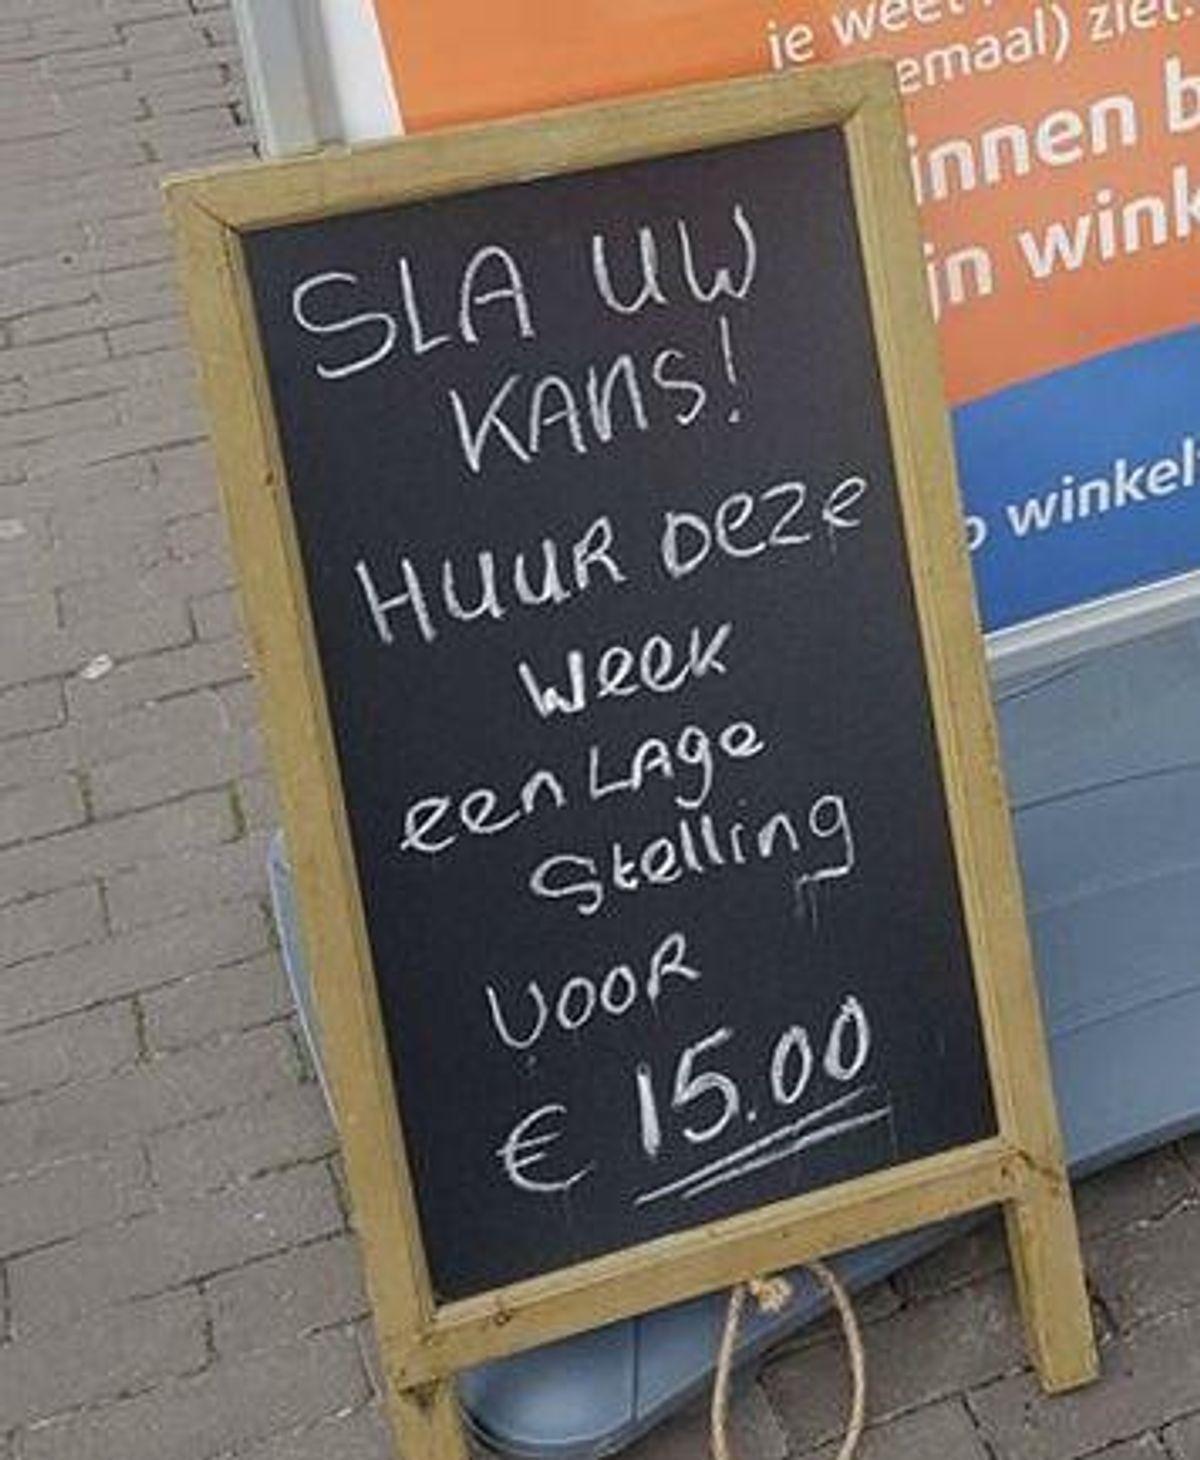 je weet
emaal) ziet.
innen b
jn wink
winkel
SLA UW
KANS!
HUUR DEZE
Week
een LAge
Stelling
VOOR
€ 15.00